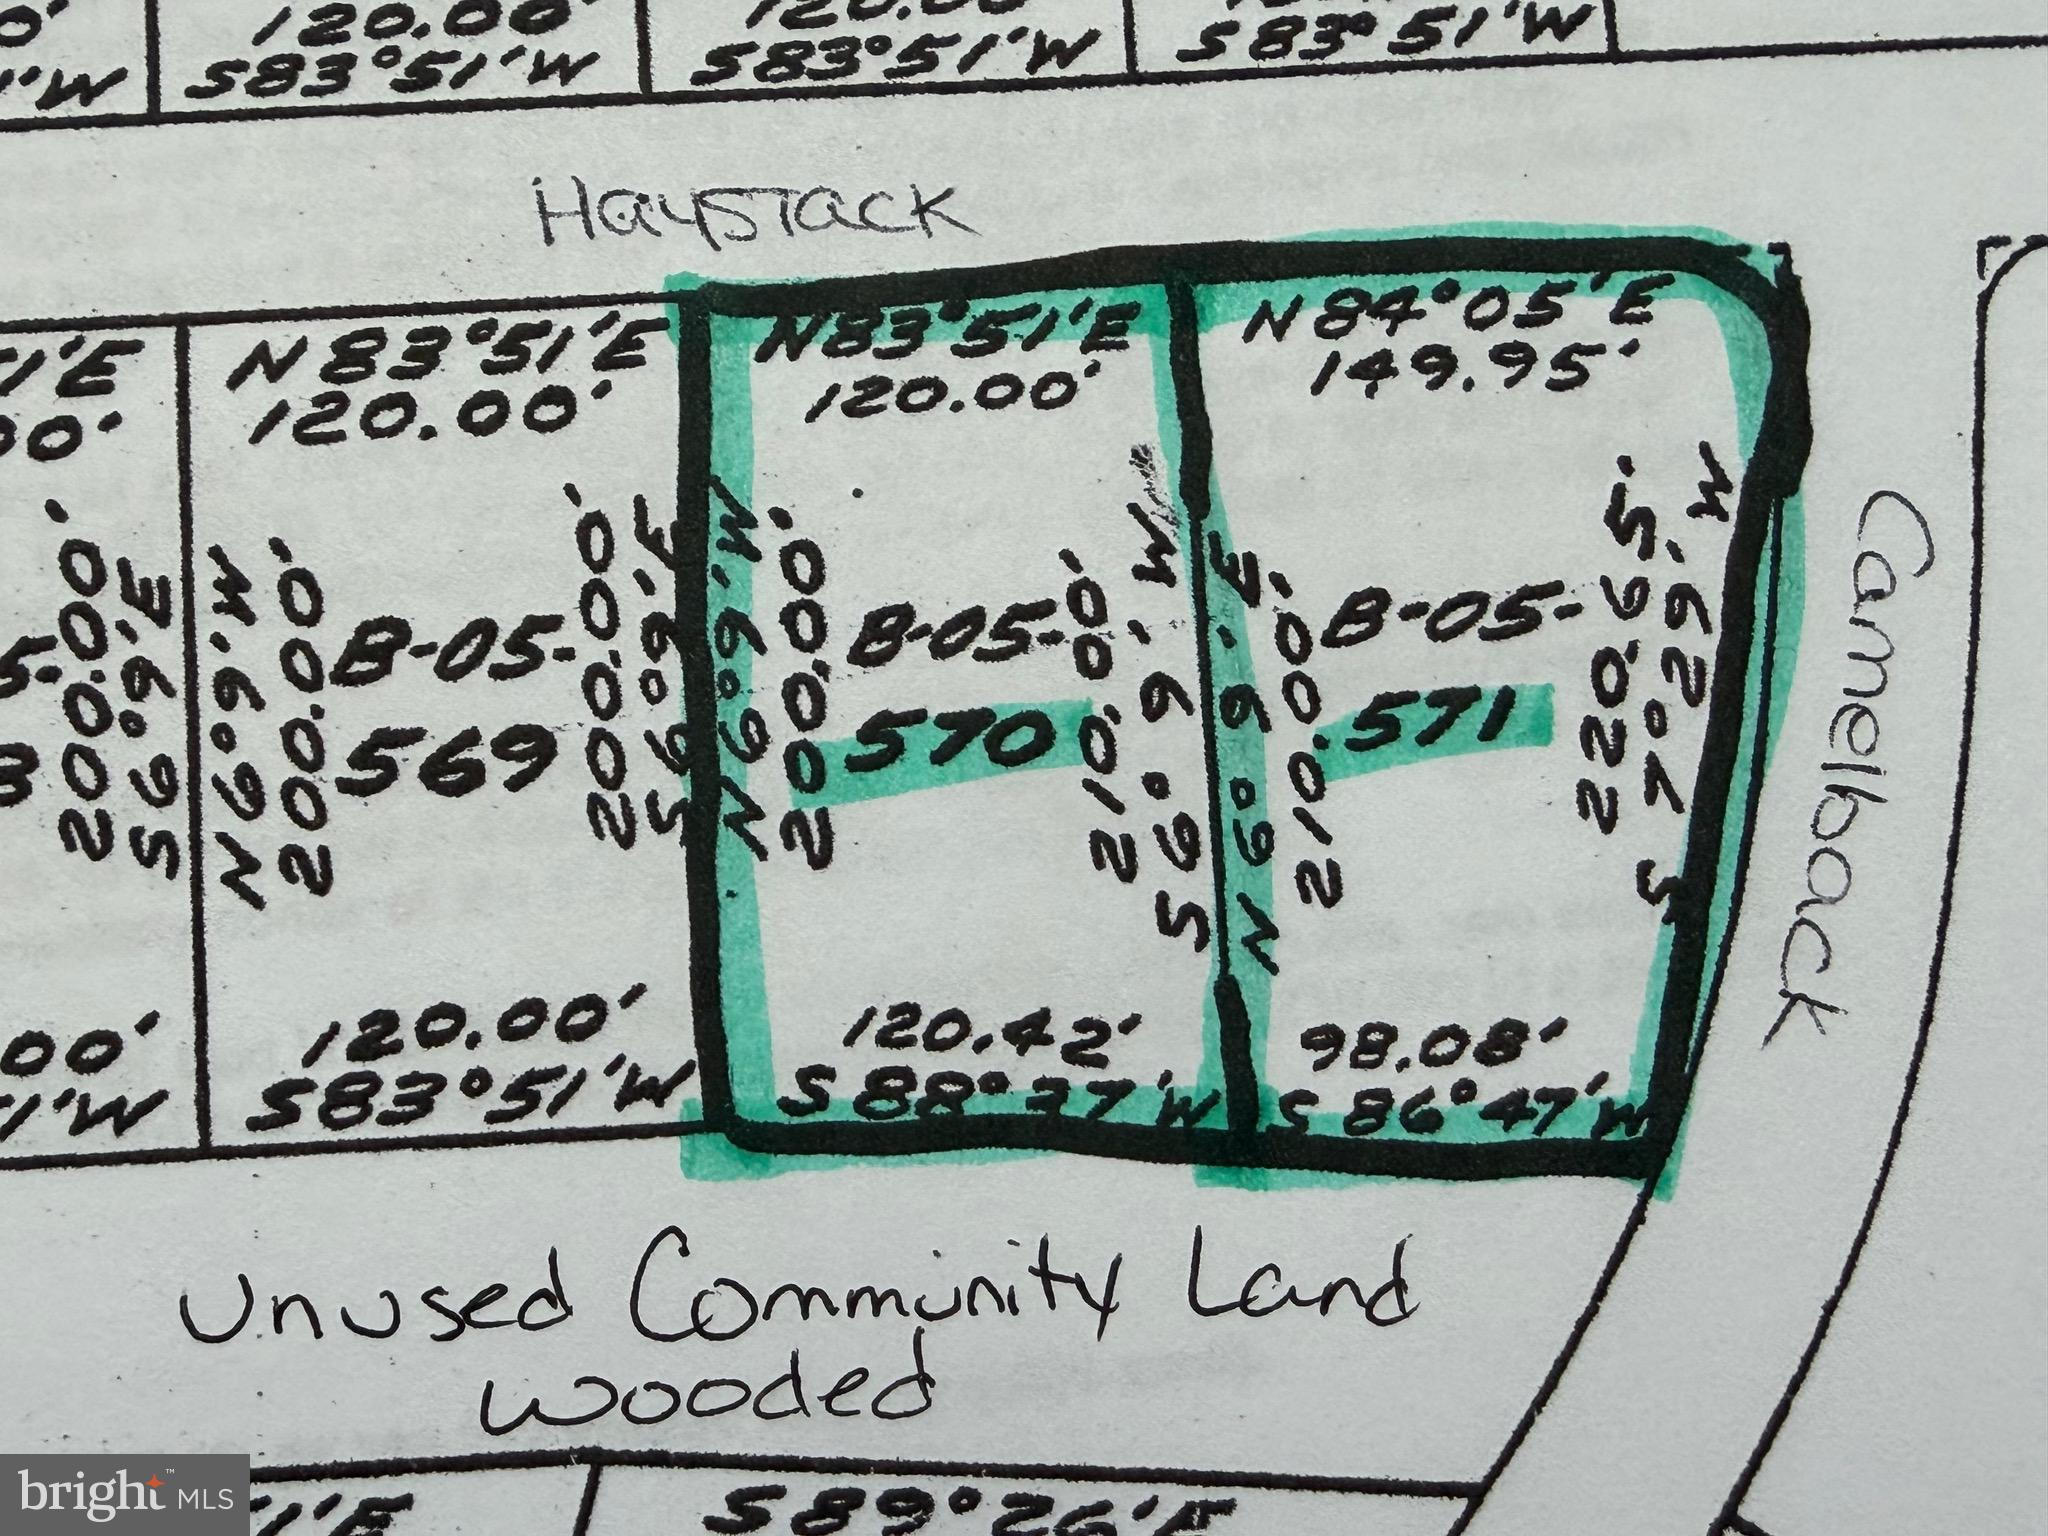 120.00'
S83°51'W
S83°51'W
S83°51'W
Haystack
N83°51'E
120.00'
N83°51'E
120.00'
N84°05'E
149.95'
200.00'
S6°9'E
N6°9'W
200.00'
B-05-
569
200.00'
S6°9'E
N6°9'W
200.00'
B-05-
570
210.00'
S6°9'W
N6°9'E
210.00'
B-05-
571
220.95'
S7°29'W
Camelback
120.00'
S83°51'W
120.42'
S88°37'W
98.08'
S86°47'W
Unused Community Land
wooded
bright™ MLS
S89°26'E